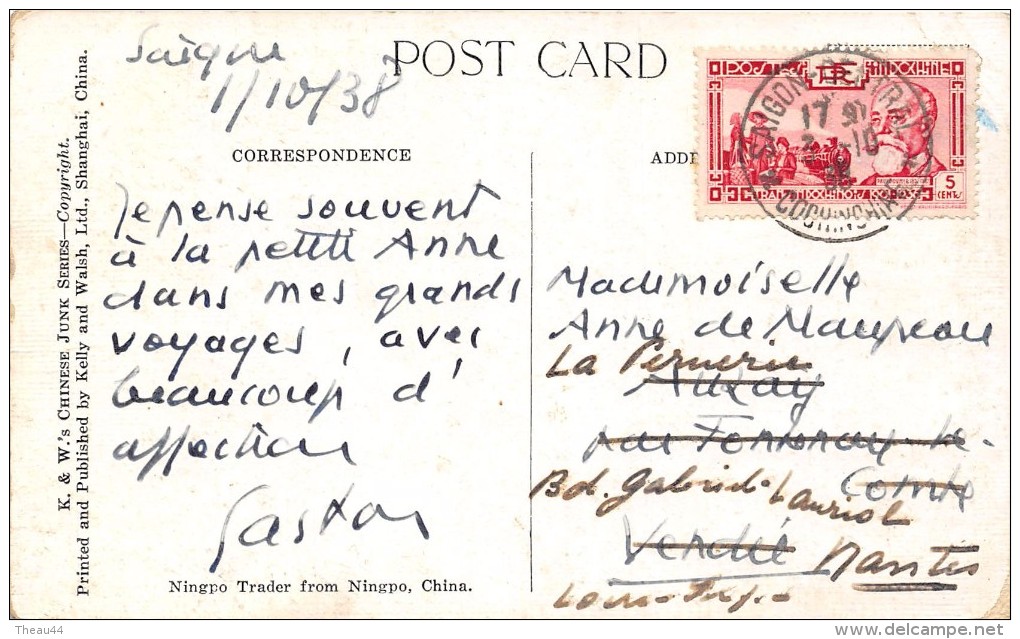 Saïgon
1/10/38
POST CARD
CORRESPONDENCE
ADDRE
POSTES RF INDOCHINE
SAIGON-CENTRAL
17
COCHINCHINE
5
CENTS
Je pense souvent
à la petite Anne
dans mes grands
voyages, avec
beaucoup d'
affection
Gaston
Mademoiselle
Anne de Maupeou
La
Auzay
par Fontenay-le-
Comte
Bd. Gabriel-Lauriol
Vendée
Nantes
Loire-Inf.
Ningpo Trader from Ningpo, China.
K. & W.'s CHINESE JUNK SERIES—Copyright.
Printed and Published by Kelly and Walsh, Ltd., Shanghai, China.
Theau44
delcampe.net